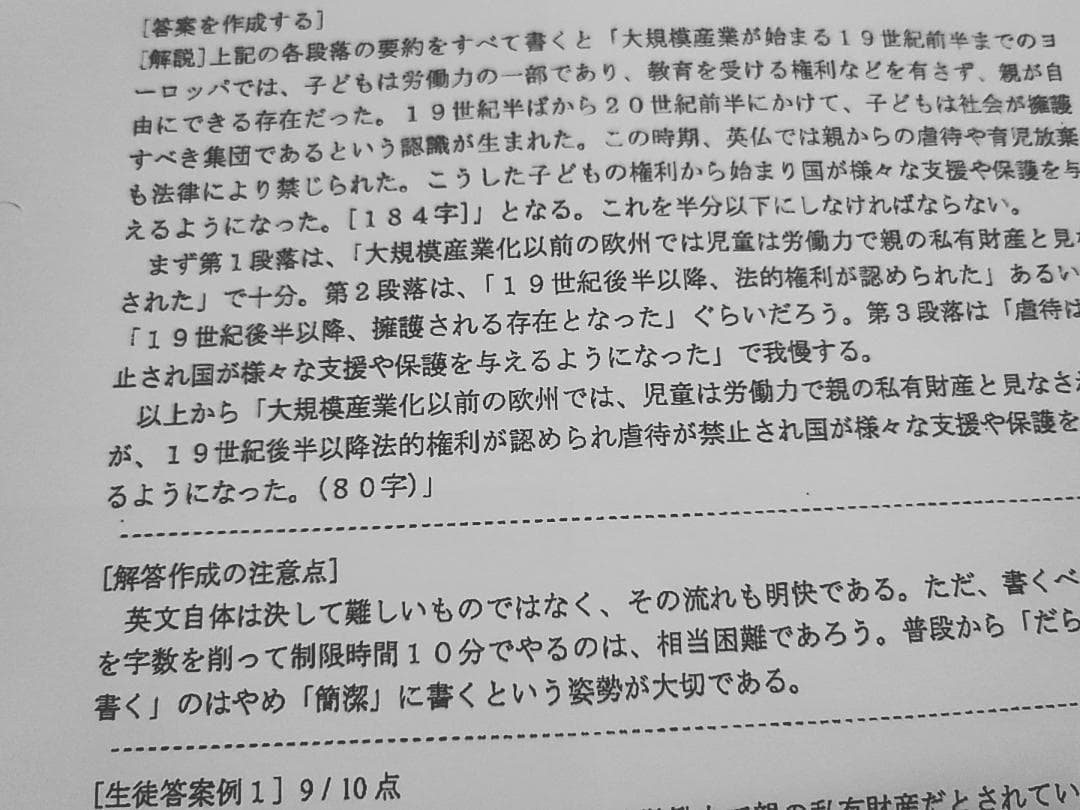 [答案を作成する]
[解説]上記の各段落の要約をすべて書くと「大規模産業が始まる19世紀前半までのヨ
ーロッパでは、子どもは労働力の一部であり、教育を受ける権利などを有さず、親が自
由にできる存在だった。19世紀半ばから20世紀前半にかけて、子どもは社会が擁護
すべき集団であるという認識が生まれた。この時期、英仏では親からの虐待や育児放棄
も法律により禁じられた。こうした子どもの権利から始まり国が様々な支援や保護を与
えるようになった。[184字]」となる。これを半分以下にしなければならない。
まず第1段落は、「大規模産業化以前の欧州では児童は労働力で親の私有財産と見な
された」で十分。第2段落は、「19世紀後半以降、法的権利が認められた」あるい
「19世紀後半以降、擁護される存在となった」ぐらいだろう。第3段落は「虐待は
止され国が様々な支援や保護を与えるようになった」で我慢する。
以上から「大規模産業化以前の欧州では、児童は労働力で親の私有財産と見なされ
が、19世紀後半以降法的権利が認められ虐待が禁止され国が様々な支援や保護を
るようになった。(80字)」
[解答作成の注意点]
英文自体は決して難しいものではなく、その流れも明快である。ただ、書くべ
を字数を削って制限時間10分でやるのは、相当困難であろう。普段から「だら
書く」のはやめ「簡潔」に書くという姿勢が大切である。
[生徒答案例1] 9/10点
労働力で親の私有財産だとされてい